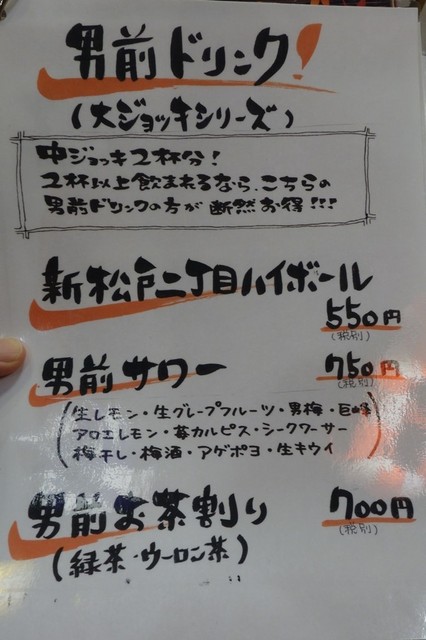 男前ドリンク!
(大ジョッキシリーズ)
中ジョッキ2杯分!
2杯以上飲まれるなら、こちらの
男前ドリンクの方が断然お得!!!
新松戸二丁目ハイボール
550円
(税別)
男前サワー 750円
(税別)
(生レモン・生グレープフルーツ・男梅・巨峰
アロエレモン・苺カルピス・シークワーサー
梅干し・梅酒・アゲポヨ・生キウイ)
男前お茶割り 700円
(税別)
(緑茶・ウーロン茶)